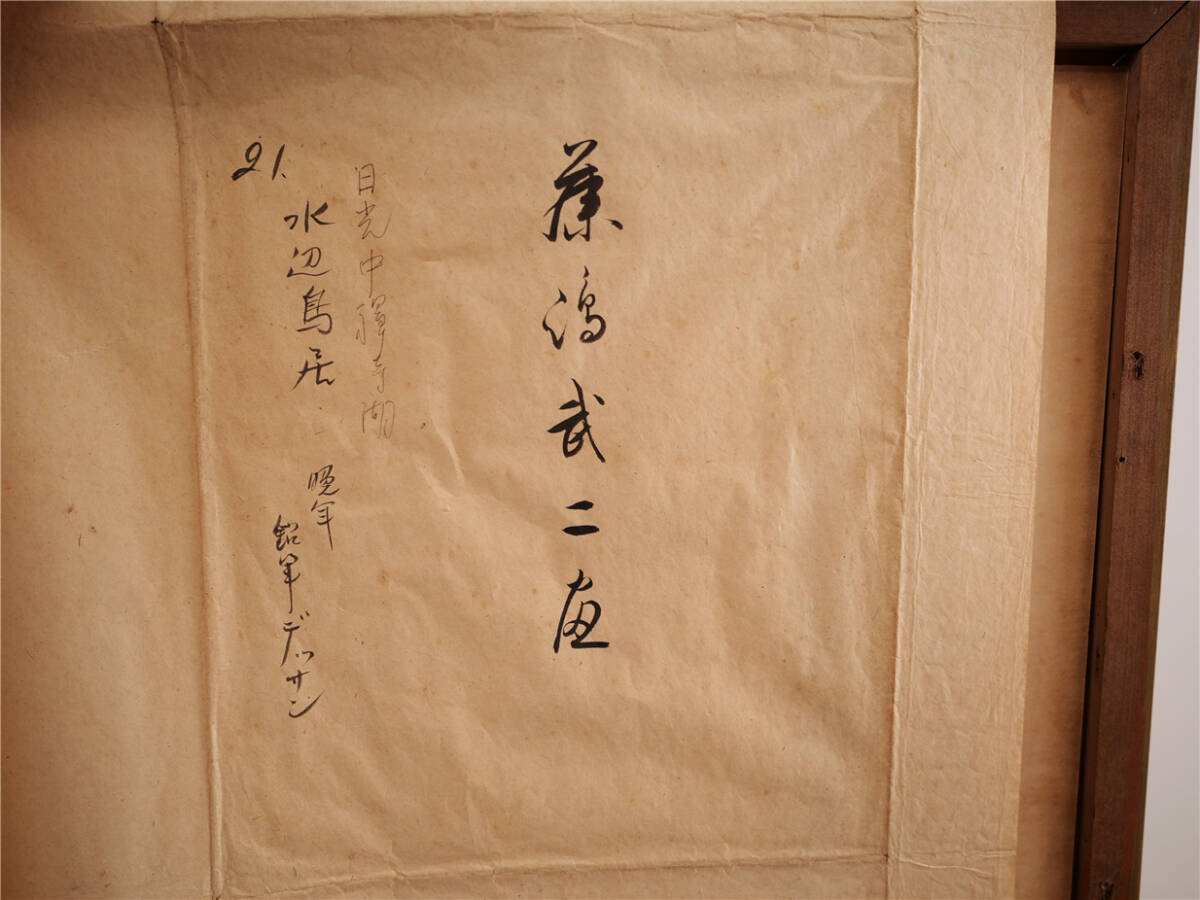 藤嶋武二画
日光中禅寺湖
21.
水辺鳥居
晩年
鉛筆デッサン